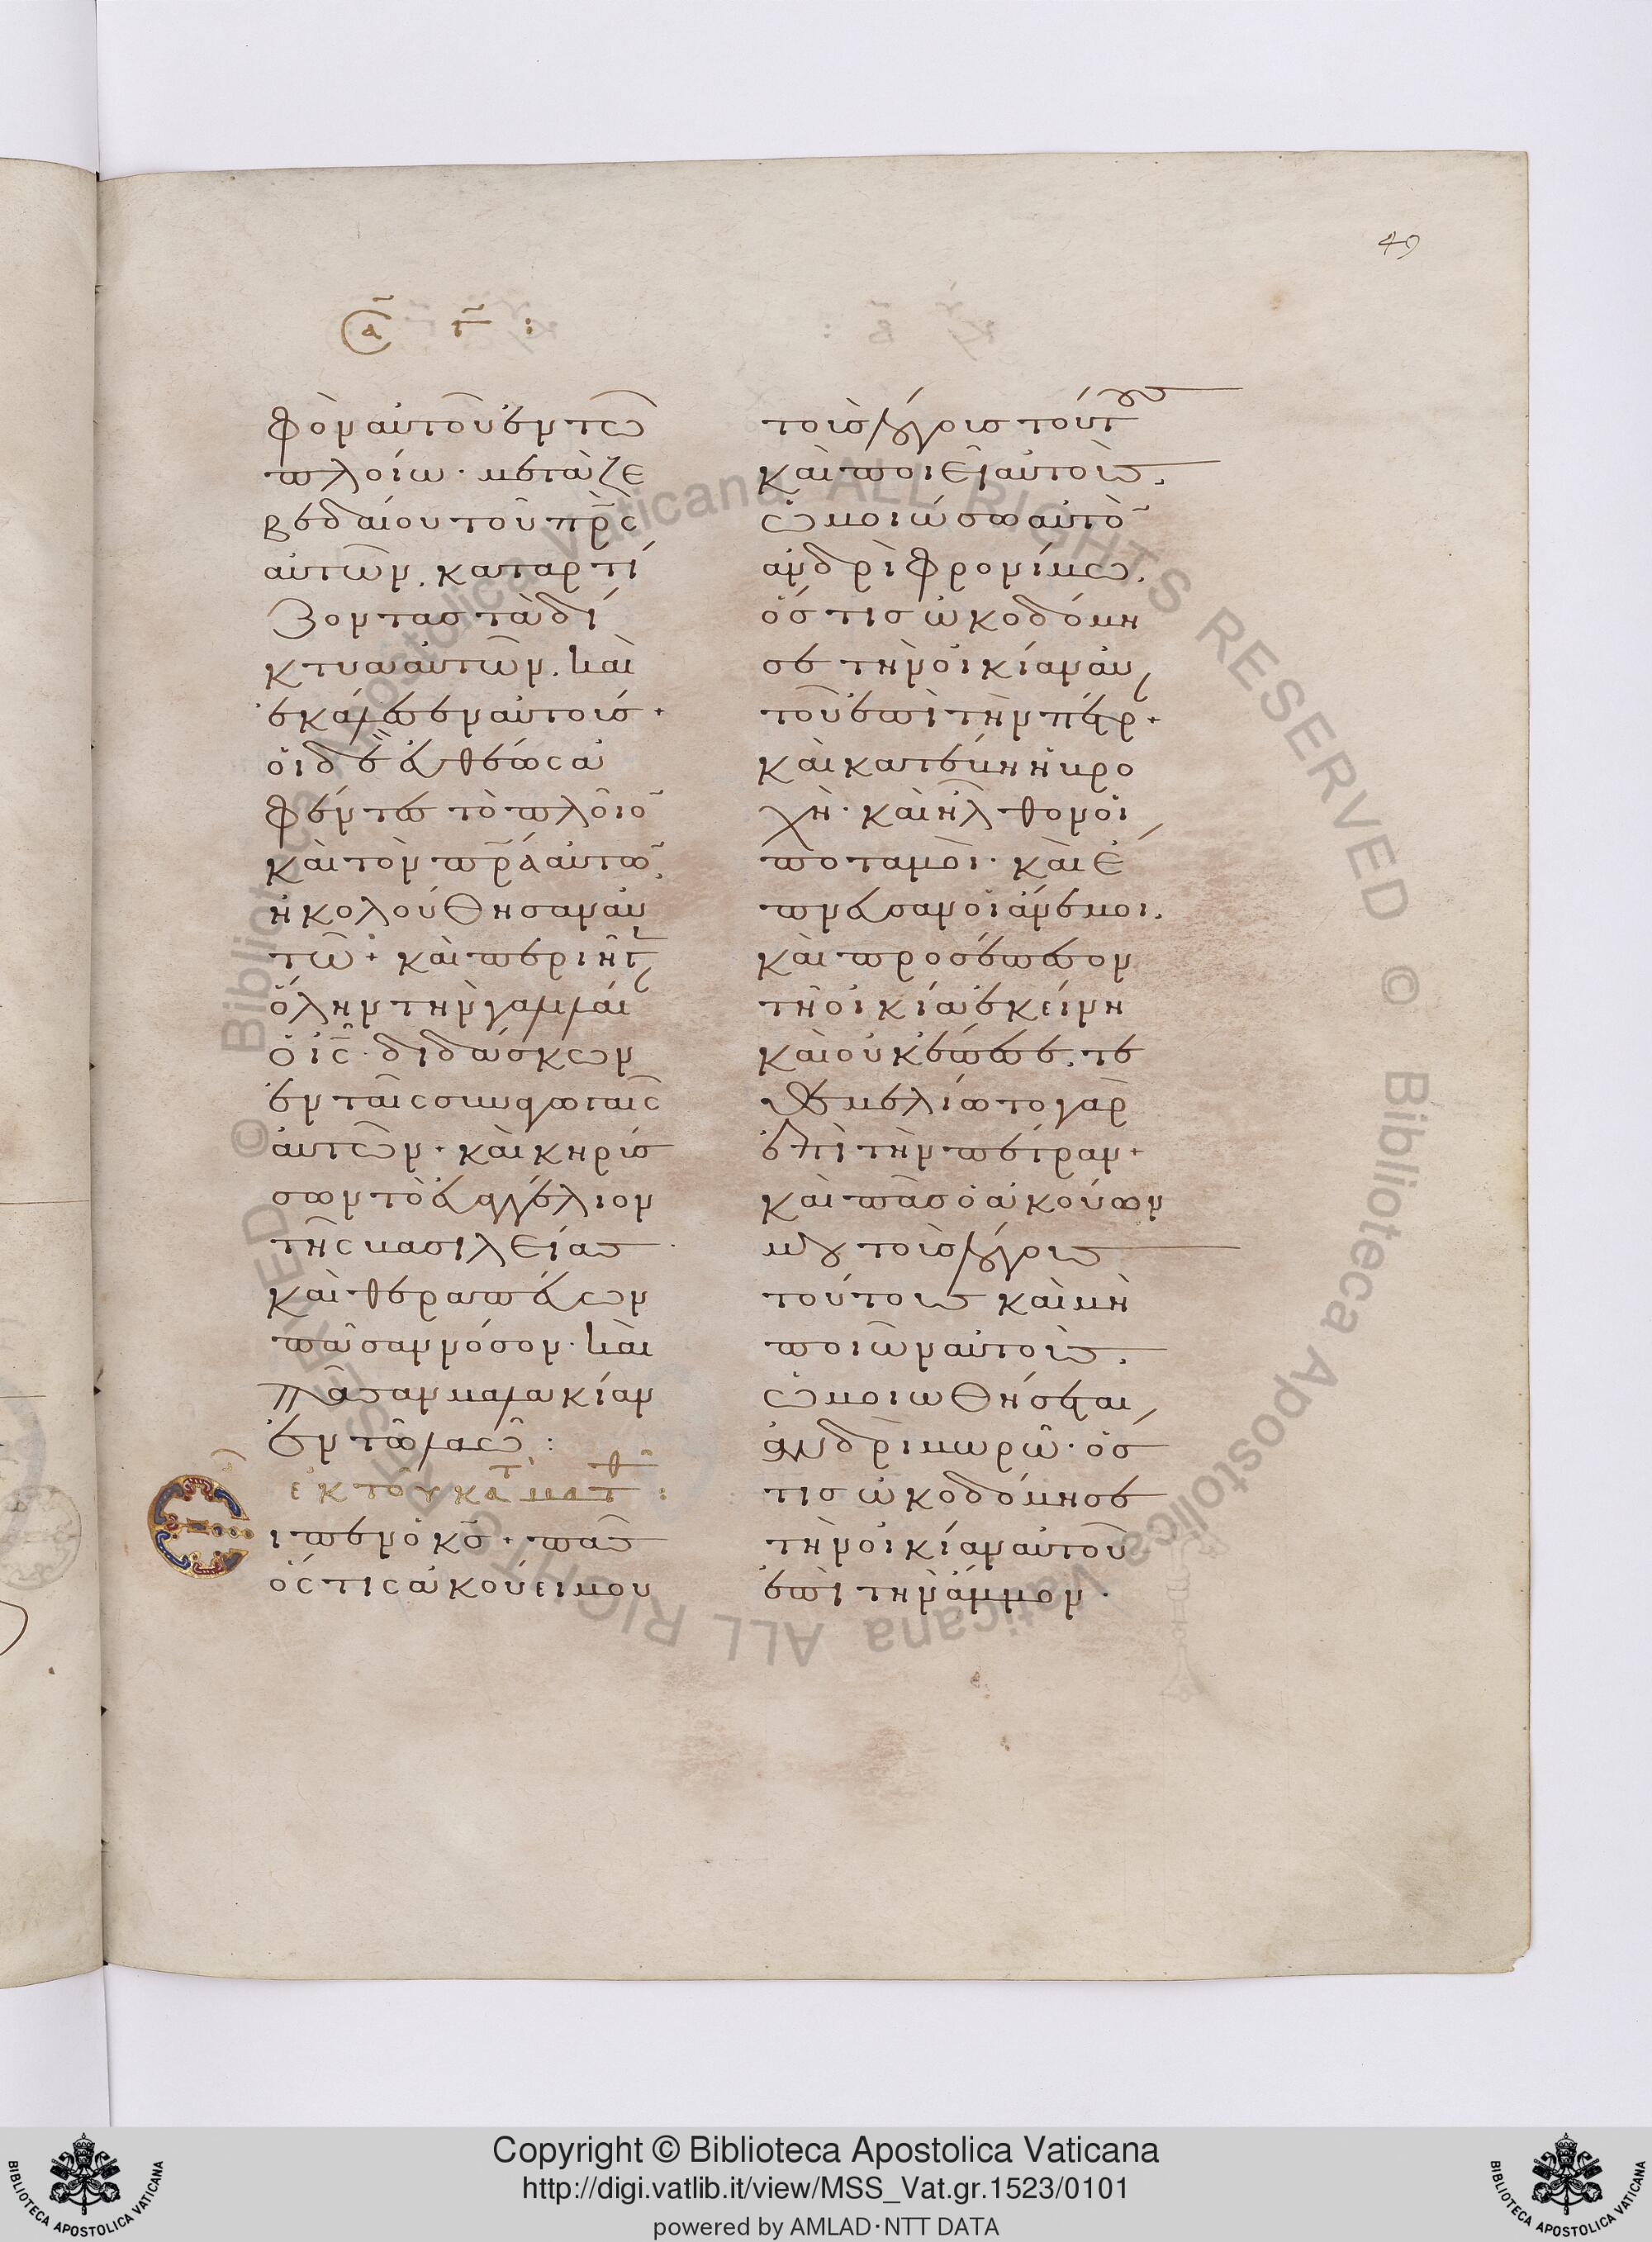 49
φὸν αὐτοῦ ἐν τῶ
πλοίω· μετὰ ζε
βεδαίου τοῦ πρ̅ς
αὐτῶν. καταρτί
ζοντας τὰ δί
κτυα αὐτῶν. καὶ
ἐκάλεσεν αὐτούς+
οἱ δὲ εὐθέως ἀ
φέντες τὸ πλοῖο̅
καὶ τὸν πρ̅α αὐτῶ̅.
ἠκολούθησαν αὐ
τῶ+ καὶ περιῆγ
ὅλην τὴν γαλιλαί
ὁ ις̅· διδάσκων
ἐν ταῖς συναγωγαῖς
αὐτῶν+ καὶ κηρύσ
σων τὸ εὐαγγέλιον
τῆς βασιλείας
καὶ θεραπεύων
πᾶσαν νόσον· καὶ
πᾶσαν μαλακίαν
ἐν τῶ λαῶ:
ἐκ τοῦ κατ ματθ:
Εἶπεν ὁ κς̅+ πᾶς
ὅστις ἀκούει μου
τοὺς λόγους τούτους
καὶ ποιεῖ αὐτούς.
ὁμοιώσω αὐτὸ̅
ἀνδρὶ φρονίμω.
ὅστις ὠκοδόμη
σε τὴν οἰκίαν αὐ
τοῦ ἐπὶ τὴν πέτρ+
καὶ κατέβη ἡ βρο
χὴ· καὶ ἦλθον οἱ
ποταμοὶ· καὶ ἔ
πνευσαν οἱ ἄνεμοι.
καὶ προσέπεσον
τῆ οἰκία ἐκείνη
καὶ οὐκ ἔπεσε. τε
θεμελίωτο γὰρ
ἐπὶ τὴν πέτραν+
καὶ πᾶς ὁ ἀκούων
μου τοὺς λόγους
τούτους καὶ μὴ
ποιῶν αὐτούς.
ὁμοιωθήσεται
ἀνδρὶ μωρῶ· ὅσ
τις ὠκοδόμησε
τὴν οἰκίαν αὐτοῦ
ἐπὶ τὴν ἄμμον·
© Biblioteca Apostolica Vaticana ALL RIGHTS RESERVED © Biblioteca Apostolica Vaticana ALL RIGHTS RESERVED
Copyright © Biblioteca Apostolica Vaticana
http://digi.vatlib.it/view/MSS_Vat.gr.1523/0101
powered by AMLAD·NTT DATA
BIBLIOTECA APOSTOLICA VATICANA
BIBLIOTECA APOSTOLICA VATICANA